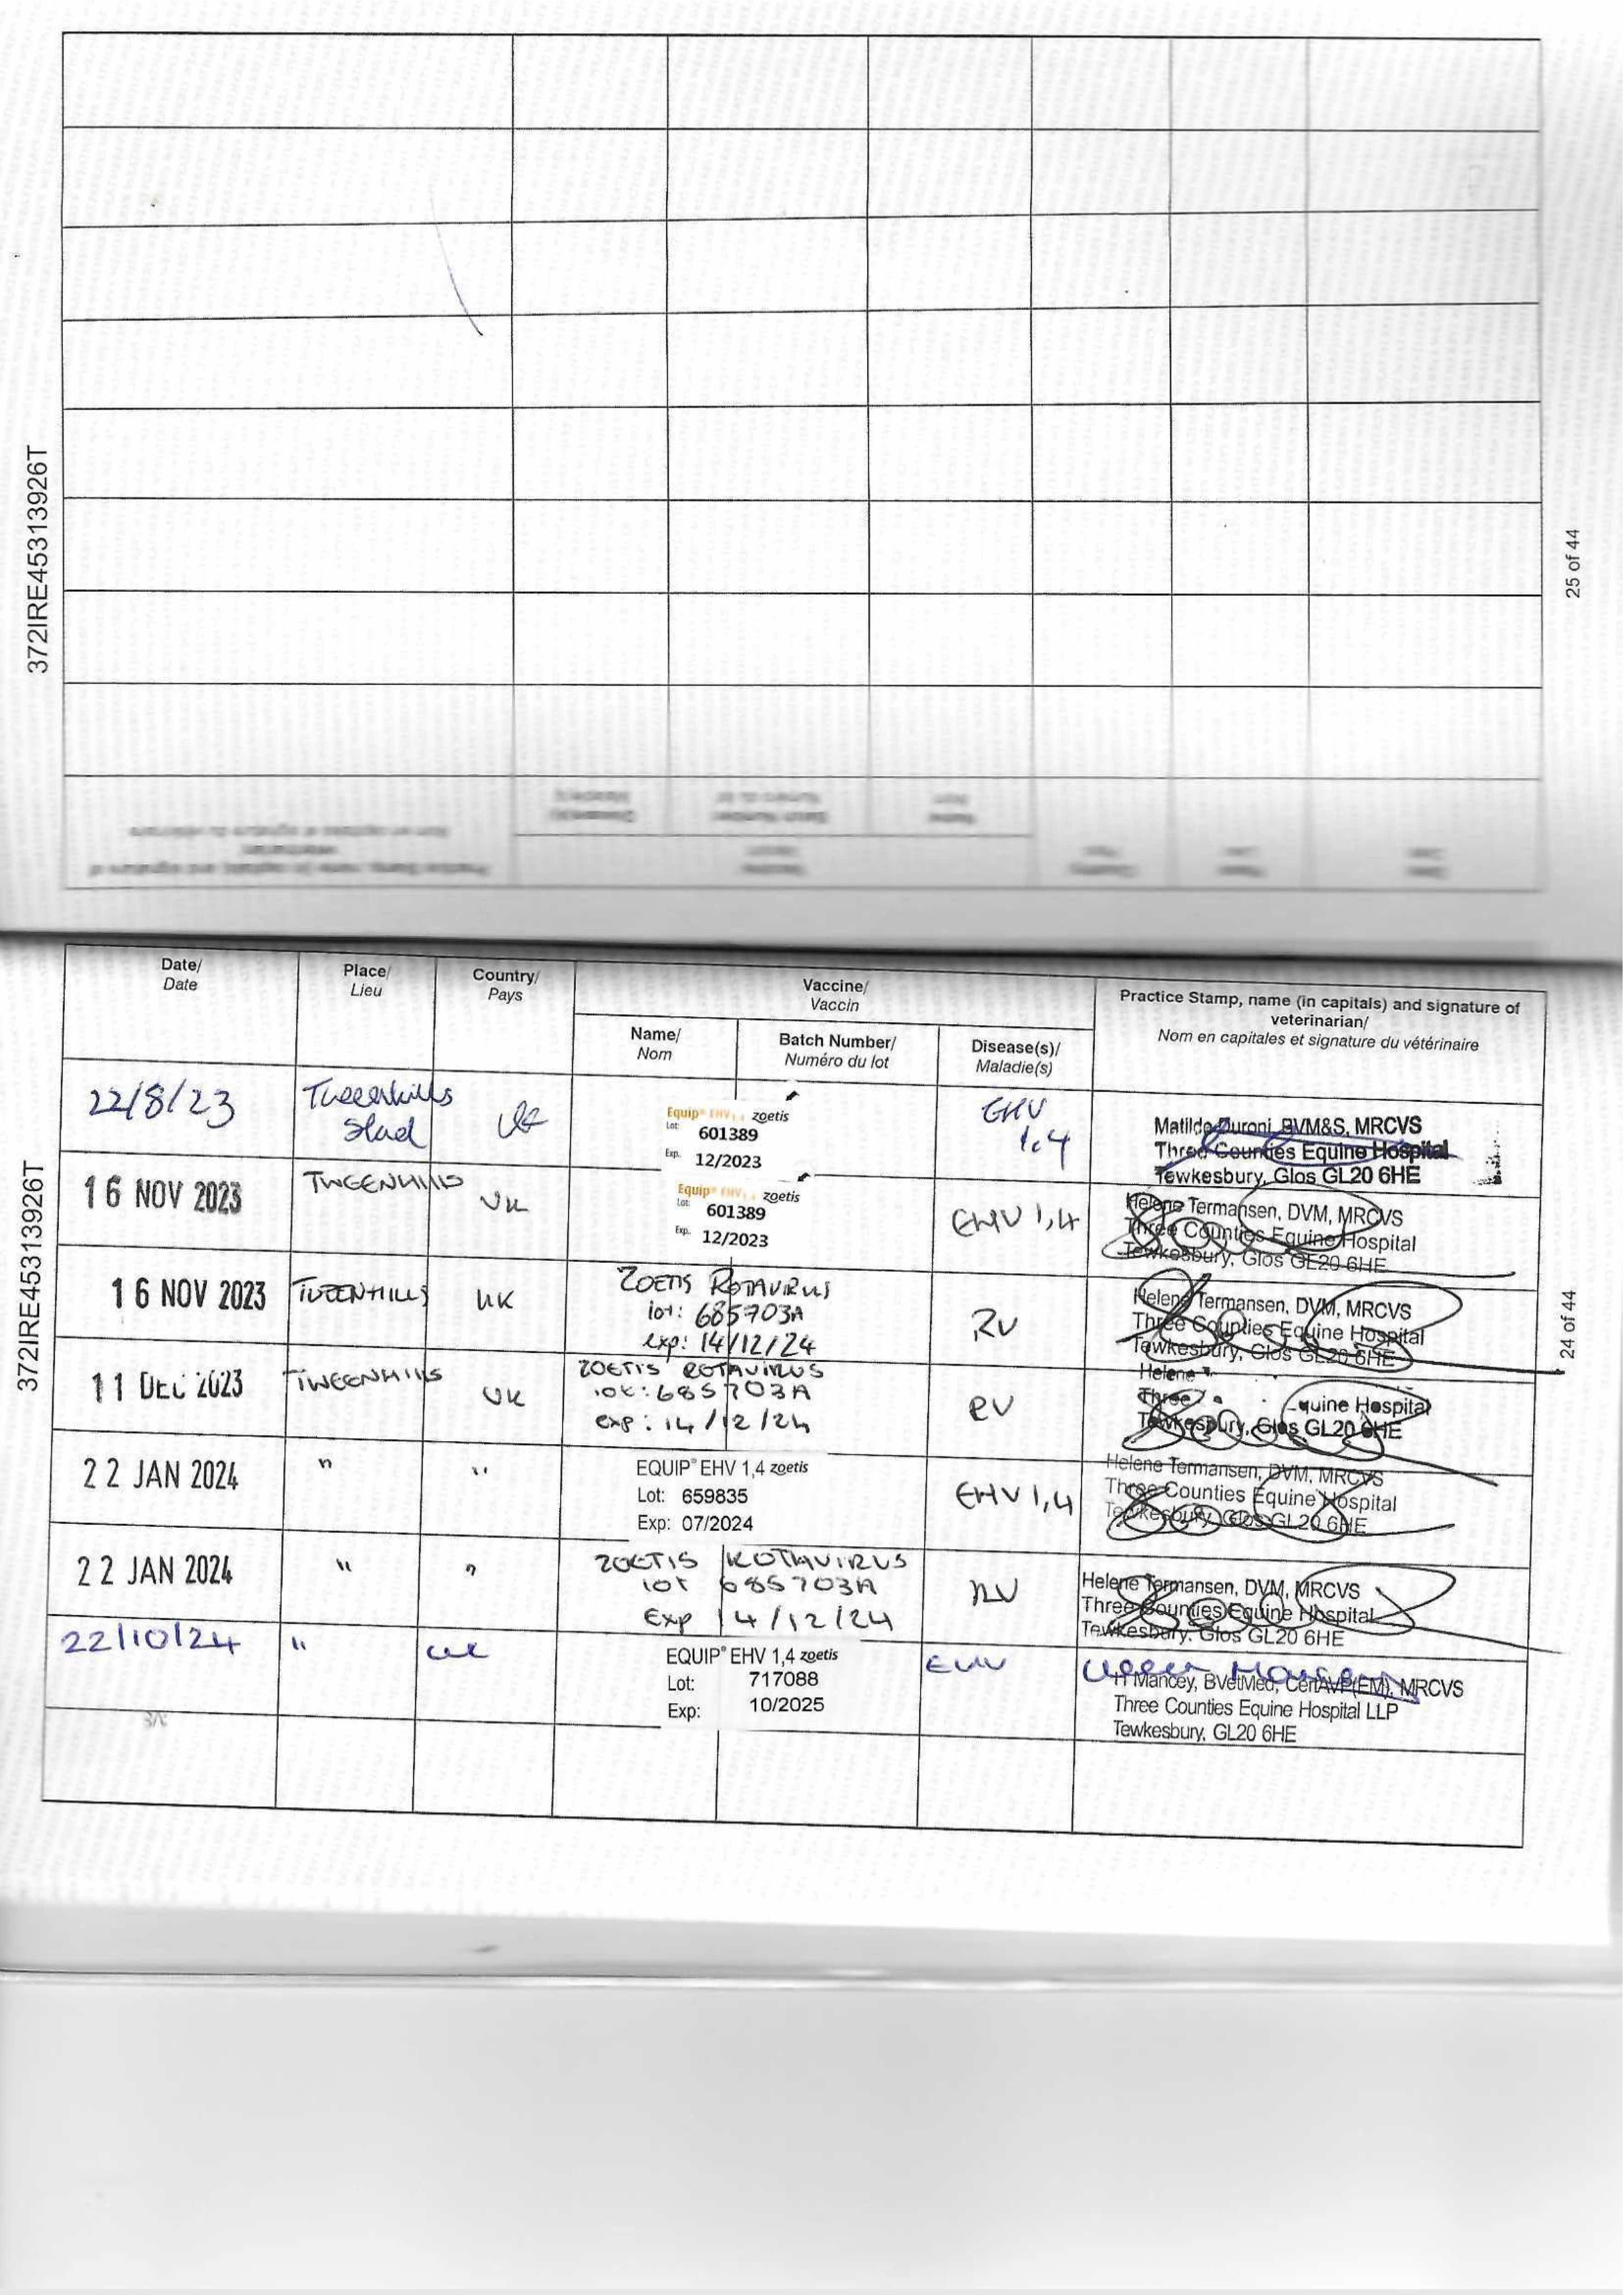 372IRE45313926T
25 of 44
Date/
Date
Place/
Lieu
Country/
Pays
Vaccine/
Vaccin
Name/
Nom
Batch Number/
Numéro du lot
Disease(s)/
Maladie(s)
Practice Stamp, name (in capitals) and signature of
veterinarian/
Nom en capitales et signature du vétérinaire
22/8/23
Tweenhills
Stud
UK
Equip® EHV 1,4 zoetis
Lot: 601389
Exp. 12/2023
EHV
1,4
Matilde BVM&S, MRCVS
Three Counties Equine Hospital
Tewkesbury, Glos GL20 6HE
16 NOV 2023
TWEENHILLS
UK
Equip® EHV 1,4 zoetis
Lot: 601389
Exp. 12/2023
EHV 1,4
Helene Termansen, DVM, MRCVS
Three Counties Equine Hospital
Tewkesbury, Glos GL20 6HE
16 NOV 2023
TWEENHILLS
UK
ZOETIS ROTAVIRUS
lot: 685703A
exp: 14/12/24
RV
Helene Termansen, DVM, MRCVS
Three Counties Equine Hospital
Tewkesbury, Glos GL20 6HE
11 DEC 2023
TWEENHILLS
UK
ZOETIS ROTAVIRUS
lot: 685703A
exp: 14/12/24
RV
Helene
Three quine Hospital
Tewkesbury, Glos GL20 6HE
22 JAN 2024
"
"
EQUIP® EHV 1,4 zoetis
Lot: 659835
Exp: 07/2024
EHV 1,4
Helene Termansen, DVM, MRCVS
Three Counties Equine Hospital
Tewkesbury, Glos GL20 6HE
22 JAN 2024
"
"
ZOETIS ROTAVIRUS
lot 685703A
Exp 14/12/24
RV
Helene Termansen, DVM, MRCVS
Three Counties Equine Hospital
Tewkesbury, Glos GL20 6HE
22/10/24
"
UK
EQUIP® EHV 1,4 zoetis
Lot: 717088
Exp: 10/2025
EHV
H Mancey, BVetMed, CertAVP(EM), MRCVS
Three Counties Equine Hospital LLP
Tewkesbury, GL20 6HE
372IRE45313926T
24 of 44